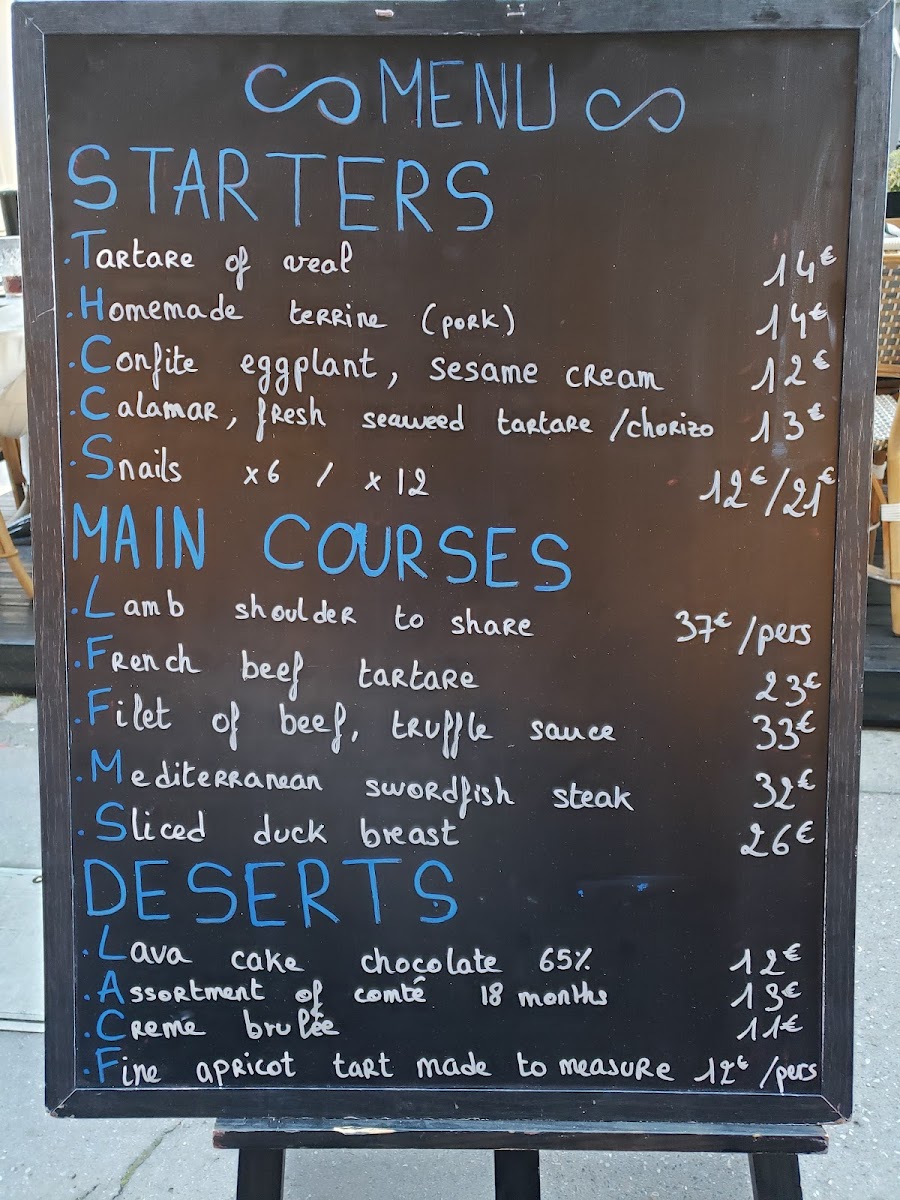 MENU
STARTERS
. Tartare of veal 14€
. Homemade terrine (pork) 14€
. Confite eggplant, sesame cream 12€
. Calamar, fresh seaweed tartare /chorizo 13€
. Snails x6 / x12 12€/21€
MAIN COURSES
. Lamb shoulder to share 37€ /pers
. French beef tartare 23€
. Filet of beef, truffle sauce 33€
. Mediterranean swordfish steak 32€
. Sliced duck breast 26€
DESERTS
. Lava cake chocolate 65% 12€
. Assortment of comtê 18 months 13€
. Creme brulée 11€
. Fine apricot tart made to measure 12€ /pers